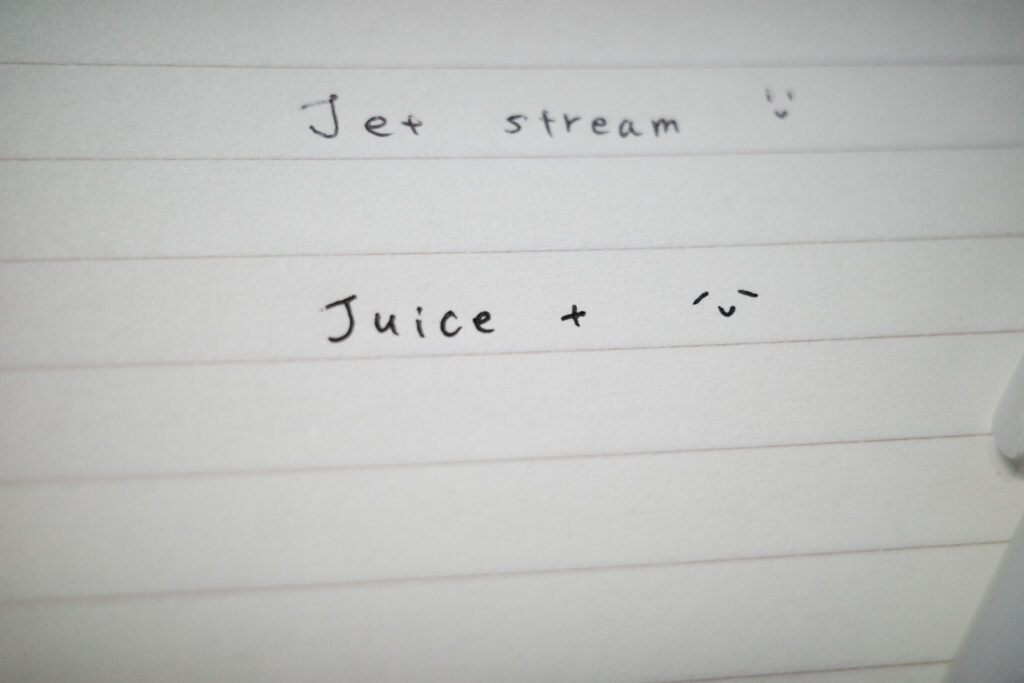 Jet stream
Juice +